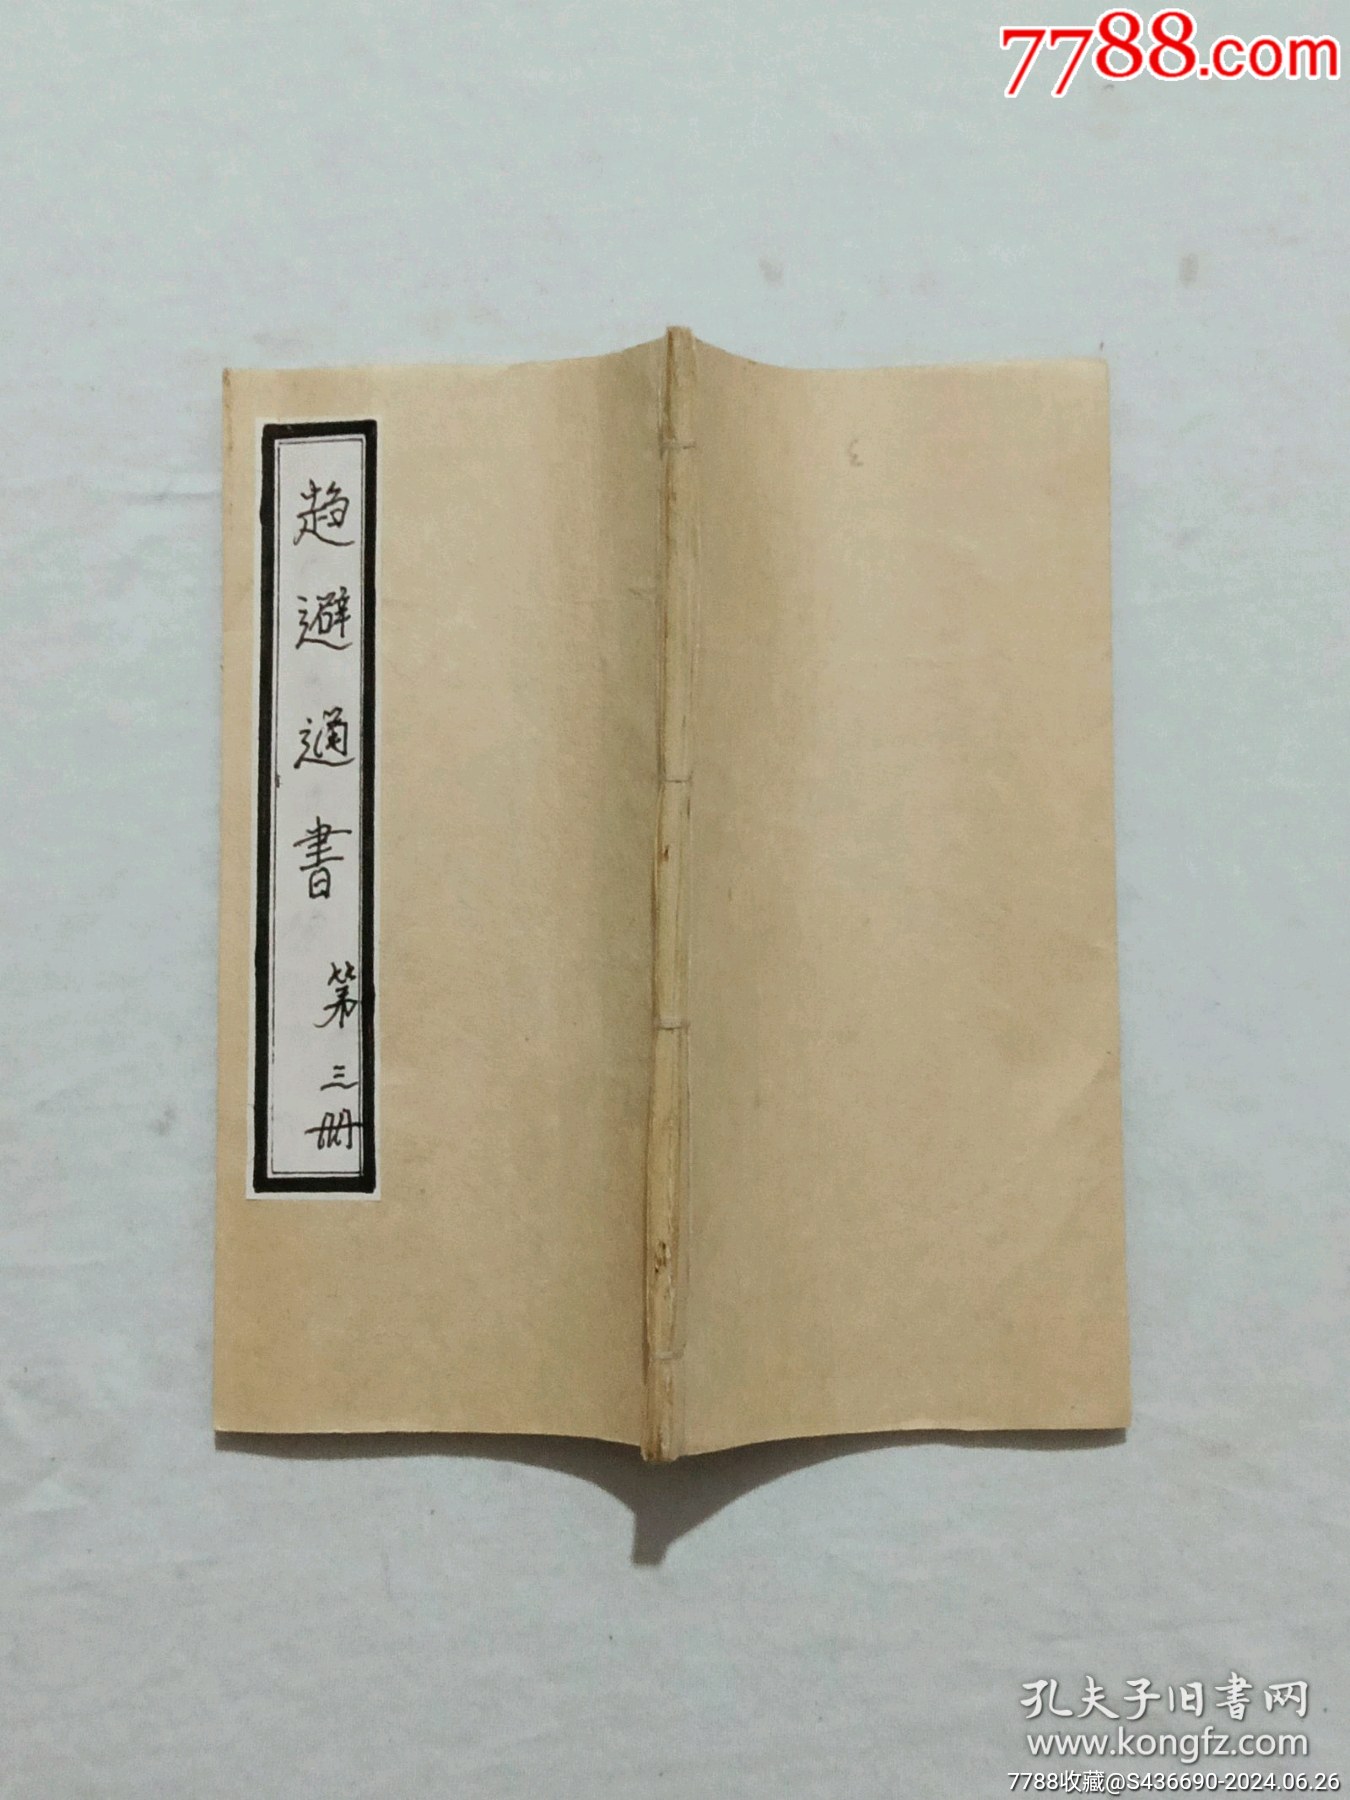 7788.com
趋避通書 第三册
孔夫子旧書网
www.kongfz.com
7788收藏@S436690-2024.06.26